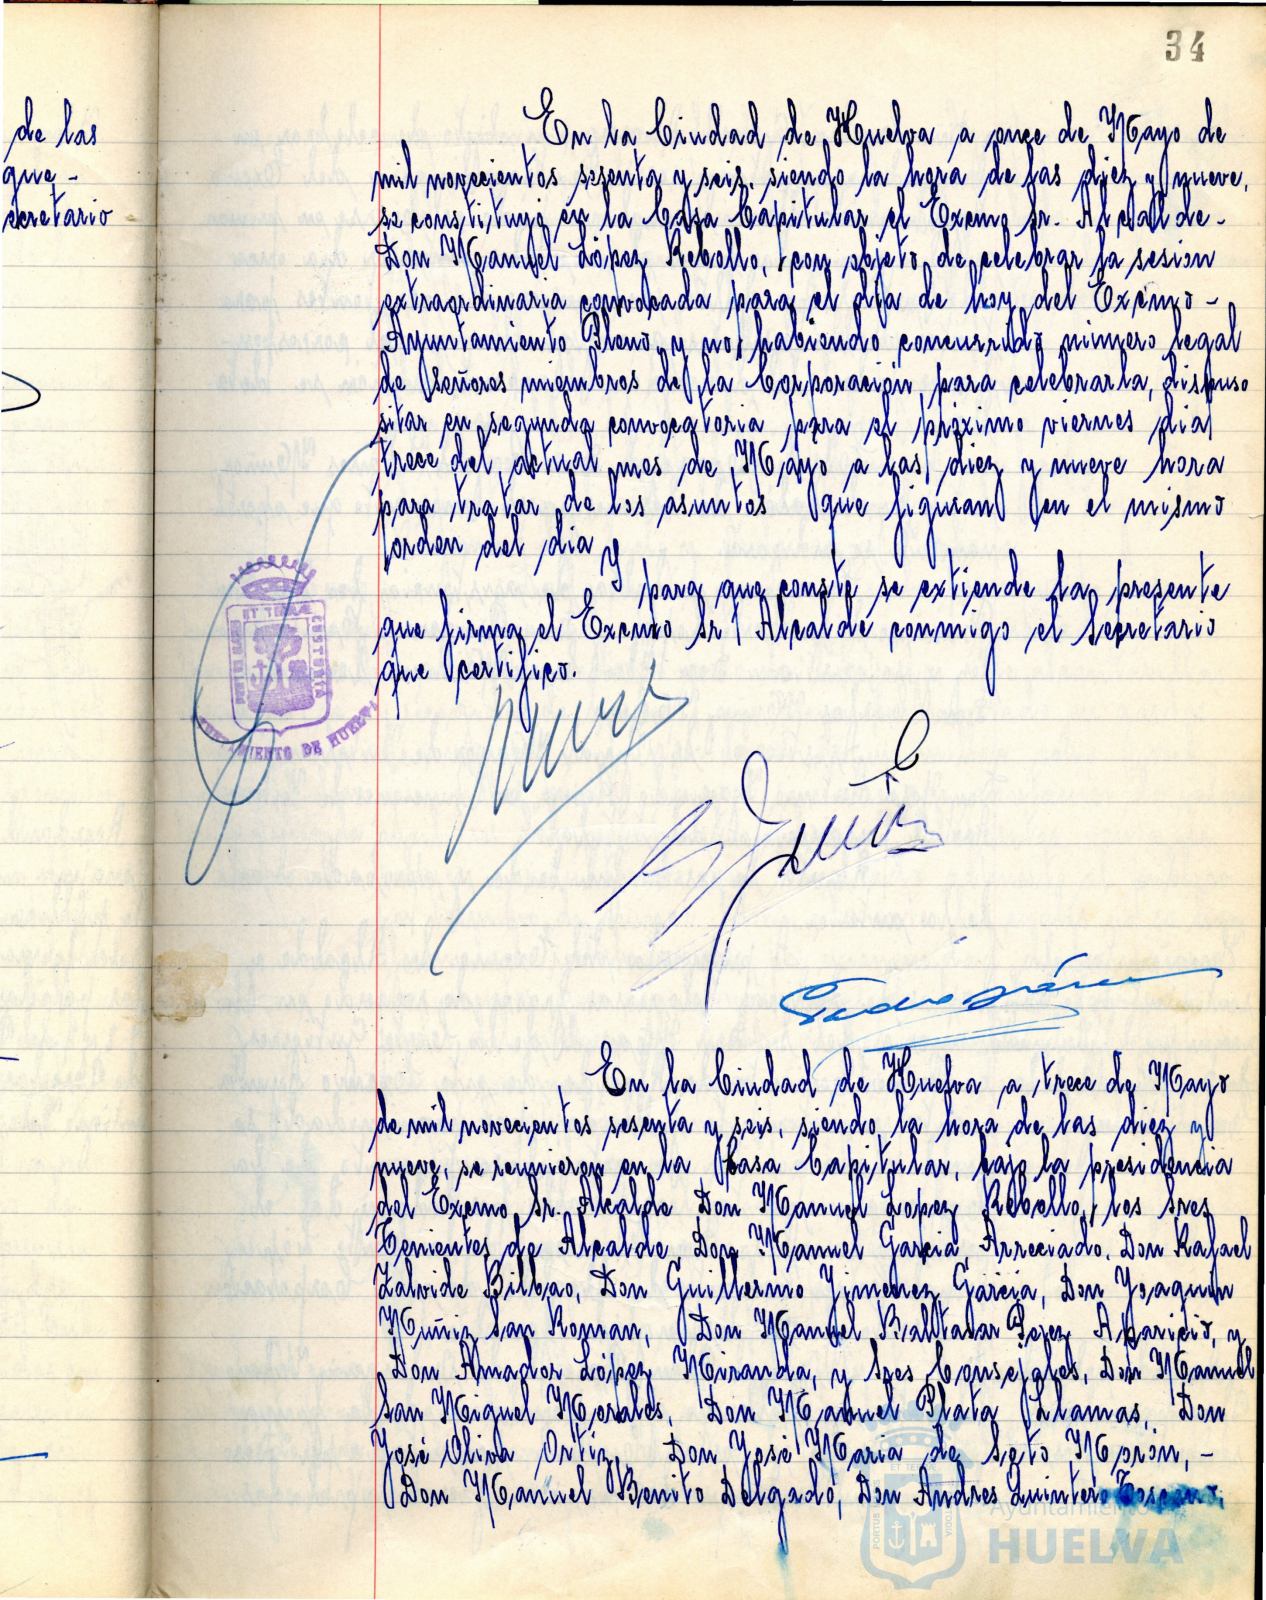 34
de las
que -
ecretario
En la Ciudad de Huelva a once de Mayo de
mil novecientos sesenta y seis, siendo la hora de las diez y nueve,
se constituyó en la Casa Capitular el Excmo Sr. Alcalde -
Don Manuel López Rebollo, con objeto de celebrar la sesión
extraordinaria convocada para el día de hoy del Excmo -
Ayuntamiento Pleno y no habiendo concurrido número legal
de señores miembros de la Corporación para celebrarla, dispuso
sitar en segunda convocatoria para el próximo viernes dia
trece del actual mes de Mayo a las diez y nueve hora
para tratar de los asuntos que figuran en el mismo
orden del dia
Y para que conste se extiende la presente
que firma el Excmo Sr Alcalde conmigo el Secretario
que certifico.
PORTUS MARIS ET TERRAE CUSTODIA
AYUNTAMIENTO DE HUELVA
En la Ciudad de Huelva a trece de Mayo
de mil novecientos sesenta y seis, siendo la hora de las diez y
nueve, se reunieron en la Casa Capitular, bajo la presidencia
del Excmo Sr. Alcalde Don Manuel Lopez Rebollo, los Sres
Tenientes de Alcalde Don Manuel Garcia Arreciado, Don Rafael
Zalvide Bilbao, Don Guillermo Jimenez García, Don Joaquin
Muñiz San Roman, Don Manuel Baltasar Perez Aparicio, y
Don Amador López Miranda, y Sres Consejales, Don Manuel
San Miguel Morales, Don Manuel Plata Llamas, Don
José Oliva Ortiz, Don José Maria de Soto Morón, -
Don Manuel Benito Delgado, Don Andres Quintero Toscano,
Ayuntamiento
HUELVA